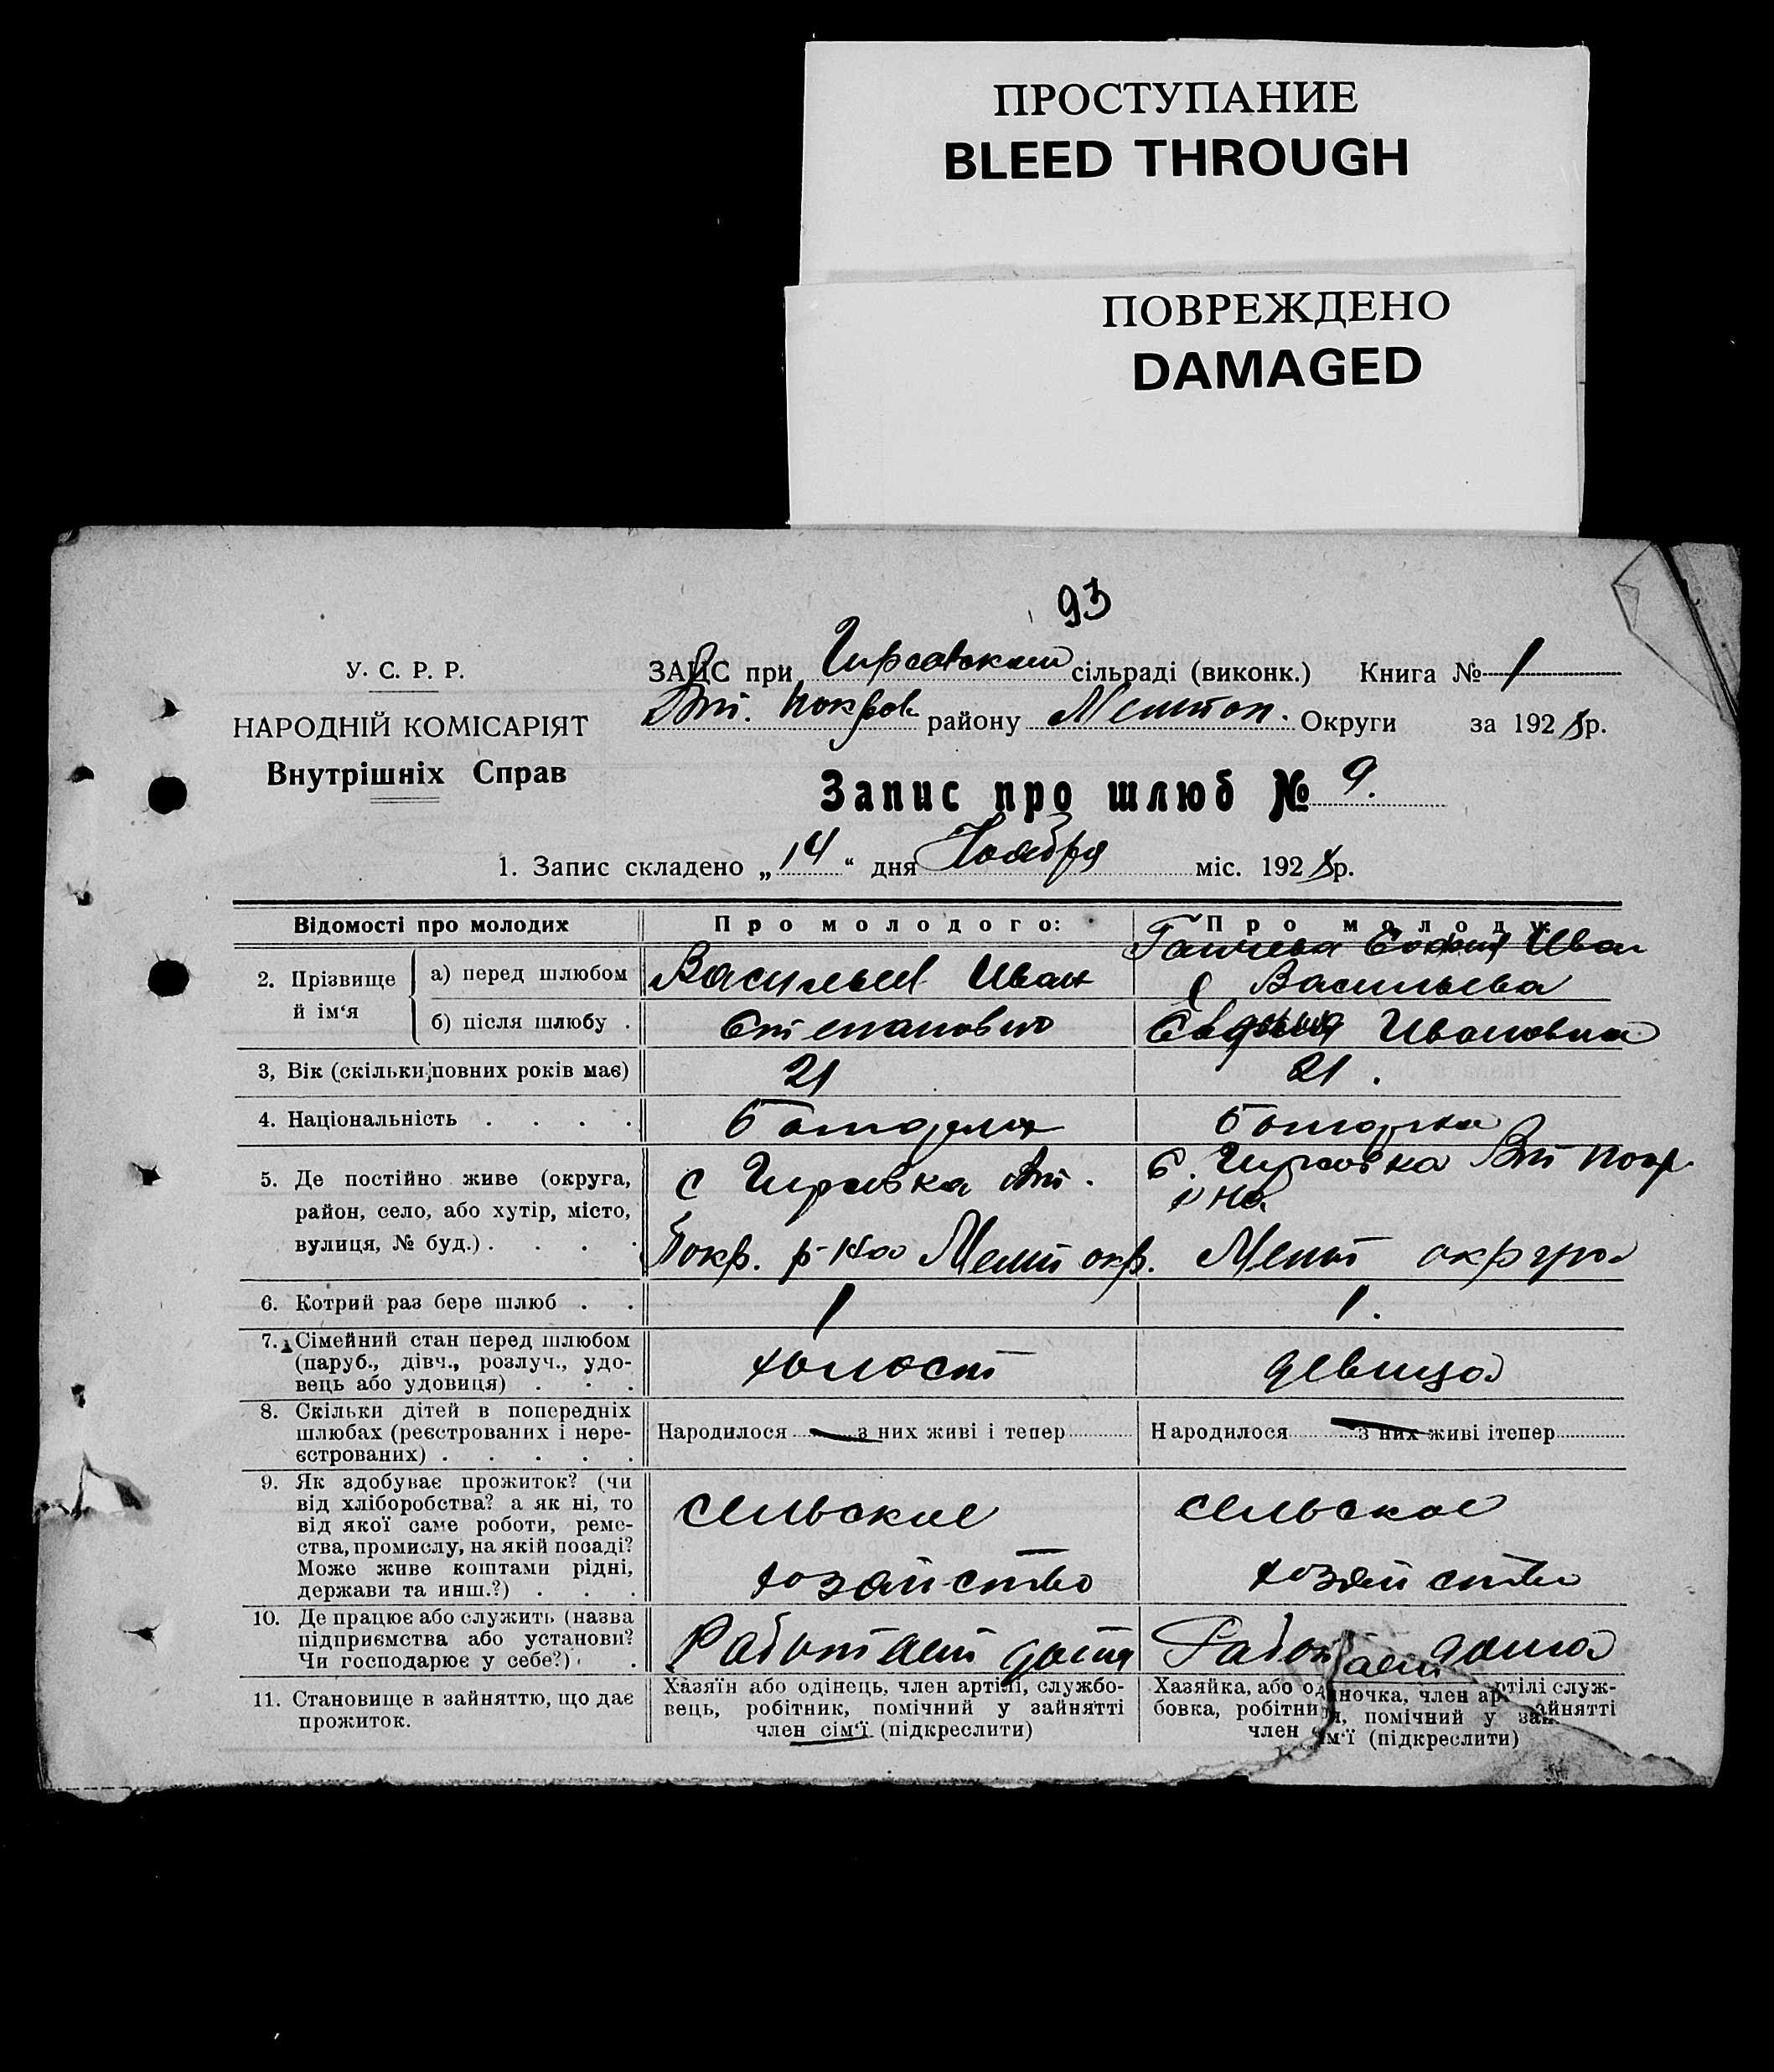 ПРОСТУПАНИЕ
BLEED THROUGH
ПОВРЕЖДЕНО
DAMAGED
93
У. С. Р. Р.
НАРОДНІЙ КОМІСАРІЯТ
Внутрішніх Справ
ЗАЦС при Гирсовском сільраді (виконк.) Книга № 1
Вт. Покров району Мелитоп. Округи за 1928 р.
Запис про шлюб № 9.
1. Запис складено „14“ дня Ноября міс. 1928 р.
Відомості про молодих Про молодого: Про молод
2. Прізвище й ім‘я
а) перед шлюбом Васильев Иван Иван
Васильева
б) після шлюбу . Степанович Ивановна
3, Вік (скільки повних років має) 21 21.
4. Національність . . . .
5. Де постійно живе (округа, с Гирсовка Вт. с. Гирсовка Вт Покр
район, село, або хутір, місто, р-на
вулиця, № буд.) . . . . Покр. р-на Мелит окр. Мелит округа
6. Котрий раз бере шлюб . . 1 1.
7. Сімейний стан перед шлюбом
(паруб., дівч., розлуч., удо-
вець або удовиця) . . . холост девица
8. Скільки дітей в попередніх
шлюбах (реєстрованих і нере-
єстрованих) . . . . .
Народилося з них живі і тепер Народилося з них живі ітепер
9. Як здобуває прожиток? (чи
від хліборобства? а як ні, то
від якої саме роботи, реме-
ства, промислу, на якій посаді?
Може живе коштами рідні,
держави та инш.?) . . .
сельское сельское
хозяйство хозяйство
10. Де працює або служить (назва
підприємства або установи?
Чи господарює у себе?) .
Работает дома Работает дома
11. Становище в зайняттю, що дає
прожиток.
Хазяїн або одінець, член артілі, службо-
вець, робітник, помічний у зайнятті
член сім‘ї (підкреслити)
Хазяйка, або одиночка, член артілі служ-
бовка, робітниця, помічний у зайнятті
член сім‘ї (підкреслити)